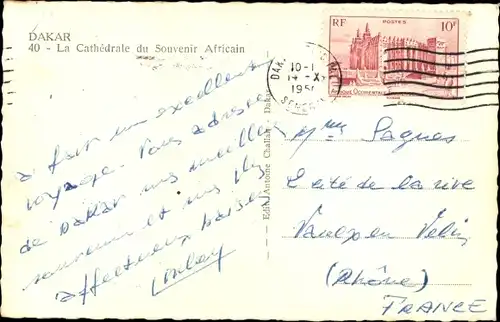 DAKAR
40 - La Cathédrale du Souvenir Africain
a fait un excellent
voyage. Vous adresse
de Dakar mes meilleurs
souvenirs et mes plus
affectueux baisers
RF POSTES 10F
10-1
14-X
195
AFRIQUE OCCIDENTALE
Edit. Antoine Challan Dakar
Mme Pagues
Cité de la rive
Vaulx en Velin
(Rhône)
FRANCE